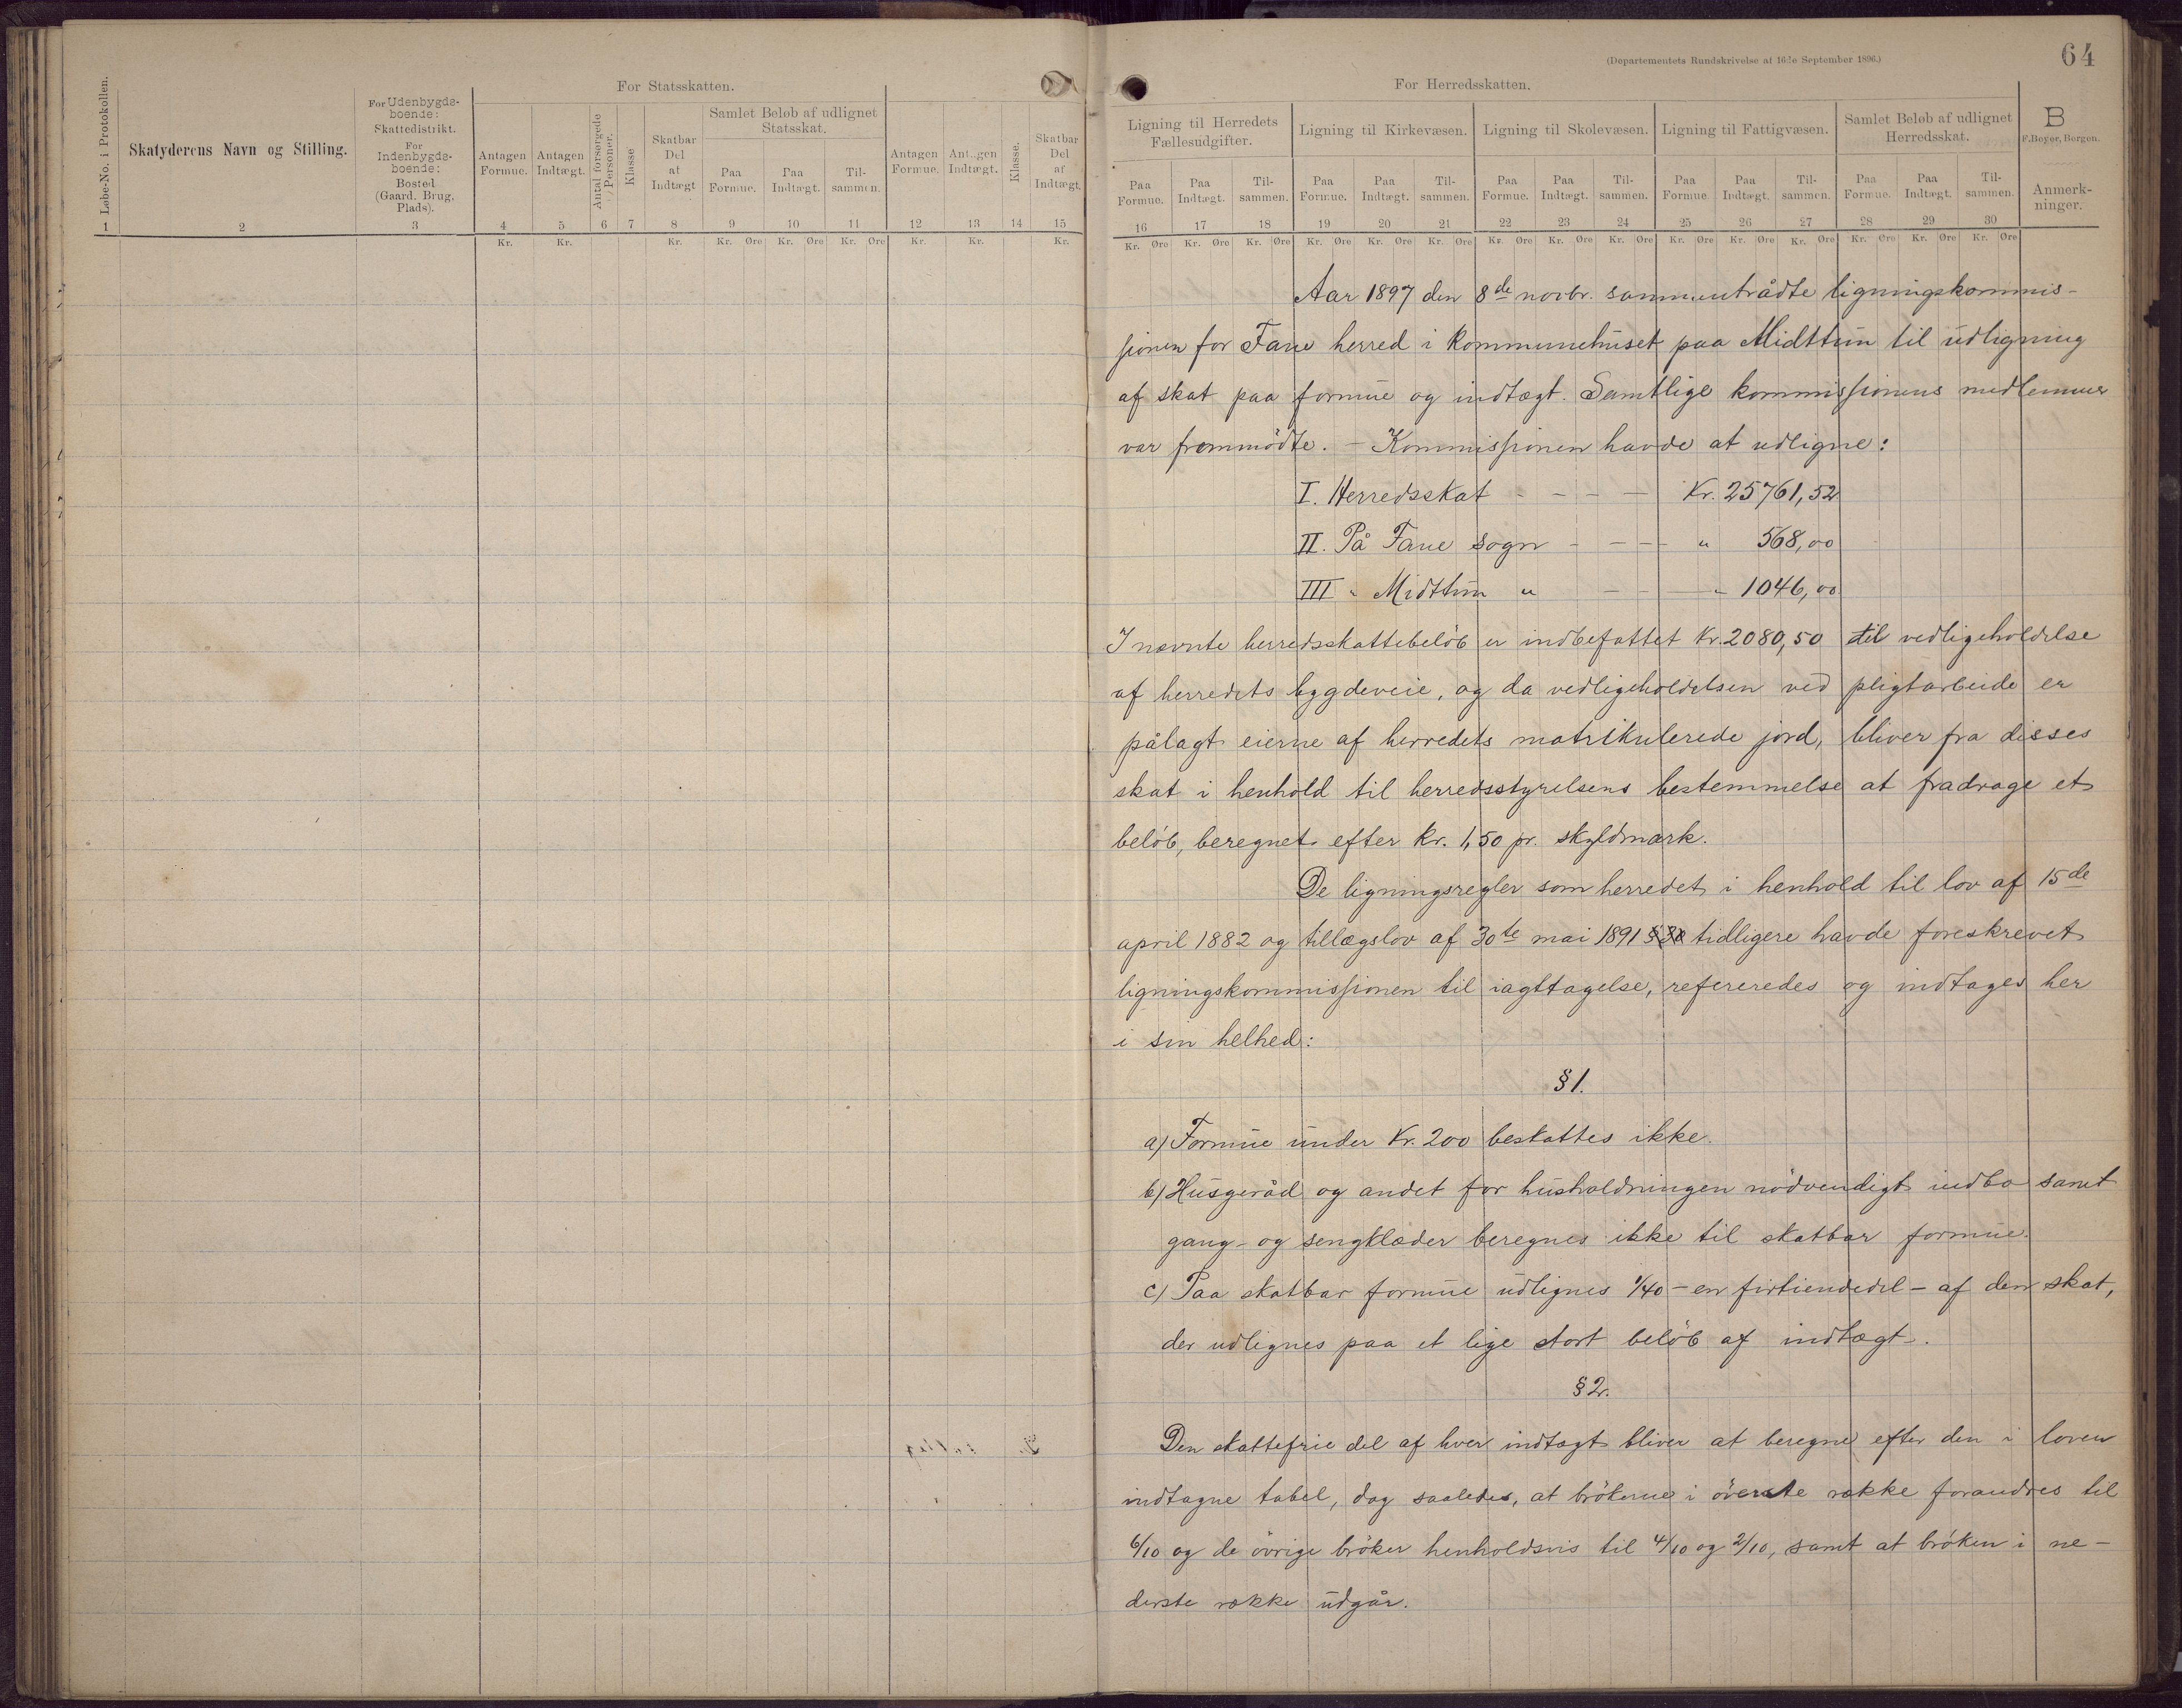 For Statsskatten.
1 Løbe-No. i Protokollen.
Skatyderens Navn og Stilling.
2
For Udenbygds-
boende:
Skattedistrikt.
For
Indenbygds-
boende:
Bosted
(Gaard, Brug,
Plads).
3
Antagen
Formue.
4
Kr.
Antagen
Indtægt.
5
Kr.
Antal forsørgede
Personer.
6
Klasse
7
Skatbar
Del
af
Indtægt
8
Kr.
Samlet Beløb af udlignet
Statsskat.
Paa
Formue.
9
Kr. Øre
Paa
Indtægt.
10
Kr. Øre
Til-
sammen.
11
Kr. Øre
Antagen
Formue.
12
Kr.
Antagen
Indtægt.
13
Kr.
Klasse.
14
Skatbar
Del
af
Indtægt.
15
Kr.
(Departementets Rundskrivelse af 16de September 1896.)
64
For Herredsskatten.
Ligning til Herredets
Fællesudgifter.
Ligning til Kirkevæsen.
Ligning til Skolevæsen.
Ligning til Fattigvæsen.
Samlet Beløb af udlignet
Herredsskat.
B
F. Beyer, Bergen.
Paa Formue. Paa Indtægt. Til-sammen. Paa Formue. Paa Indtægt. Til-sammen. Paa Formue. Paa Indtægt. Til-sammen. Paa Formue Paa Indtægt. Til-sammen. Paa Formue. Paa Indtægt. Til-sammen.
Anmerk-
ninger.
16 17 18 19 20 21 22 23 24 25 26 27 28 29 30
Kr. Øre Kr. Øre Kr. Øre Kr. Øre Kr. Øre Kr. Øre Kr. Øre Kr. Øre Kr. Øre Kr. Øre Kr. Øre Kr. Øre Kr. Øre Kr. Øre Kr. Øre
Aar 1897 den 8de novbr. sammentrådte ligningskommis-
sionen for Fane herred i kommunehuset paa Midttun til udligning
af skat paa formue og indtægt. Samtlige kommissionens medlemmer
var fremmödte. - Kommissionen havde at udligne:
I. Herredsskat - - - - Kr. 25761,52
II. På Fane sogn - - - " 568,00
III " Midttun " - - - " 1046,00
I nævnte herredsskattebelöb er indbefattet kr. 2080,50 til vedligeholdelse
af herredets bygdeveie, og da vedligeholdelsen ved pligtarbeide er
pålagt eierne af herredets matrikulerede jord, bliver fra disses
skat i henhold til herredsstyrelsens bestemmelse at fradrage et
belöb, beregnet efter kr. 1,50 pr. skyldmark.
De ligningsregler som herredet i henhold til lov af 15de
april 1882 og tillægslov af 30te mai 1891 tidligere havde foreskrevet
ligningskommissionen til iagttagelse, refereredes og indtages her
i sin helhed:
§ 1.
a) Formue under Kr. 200 beskattes ikke.
b) Husgeråd og andet for husholdningen nödvendigt indbo samt
gang- og sengklæder beregnes ikke til skatbar formue.
c) Paa skatbar formue udlignes 1/40 - en firtiendedel - af den skat,
der udlignes paa et lige stort belöb af indtægt.
§ 2.
Den skattefrie del af hver indtægt bliver at beregne efter den i loven
indtagne tabel, dog saaledes, at brökerne i överste række forandres til
6/10 og de övrige bröker henholdsvis til 4/10 og 2/10, samt at bröken i ne-
derste række udgår.